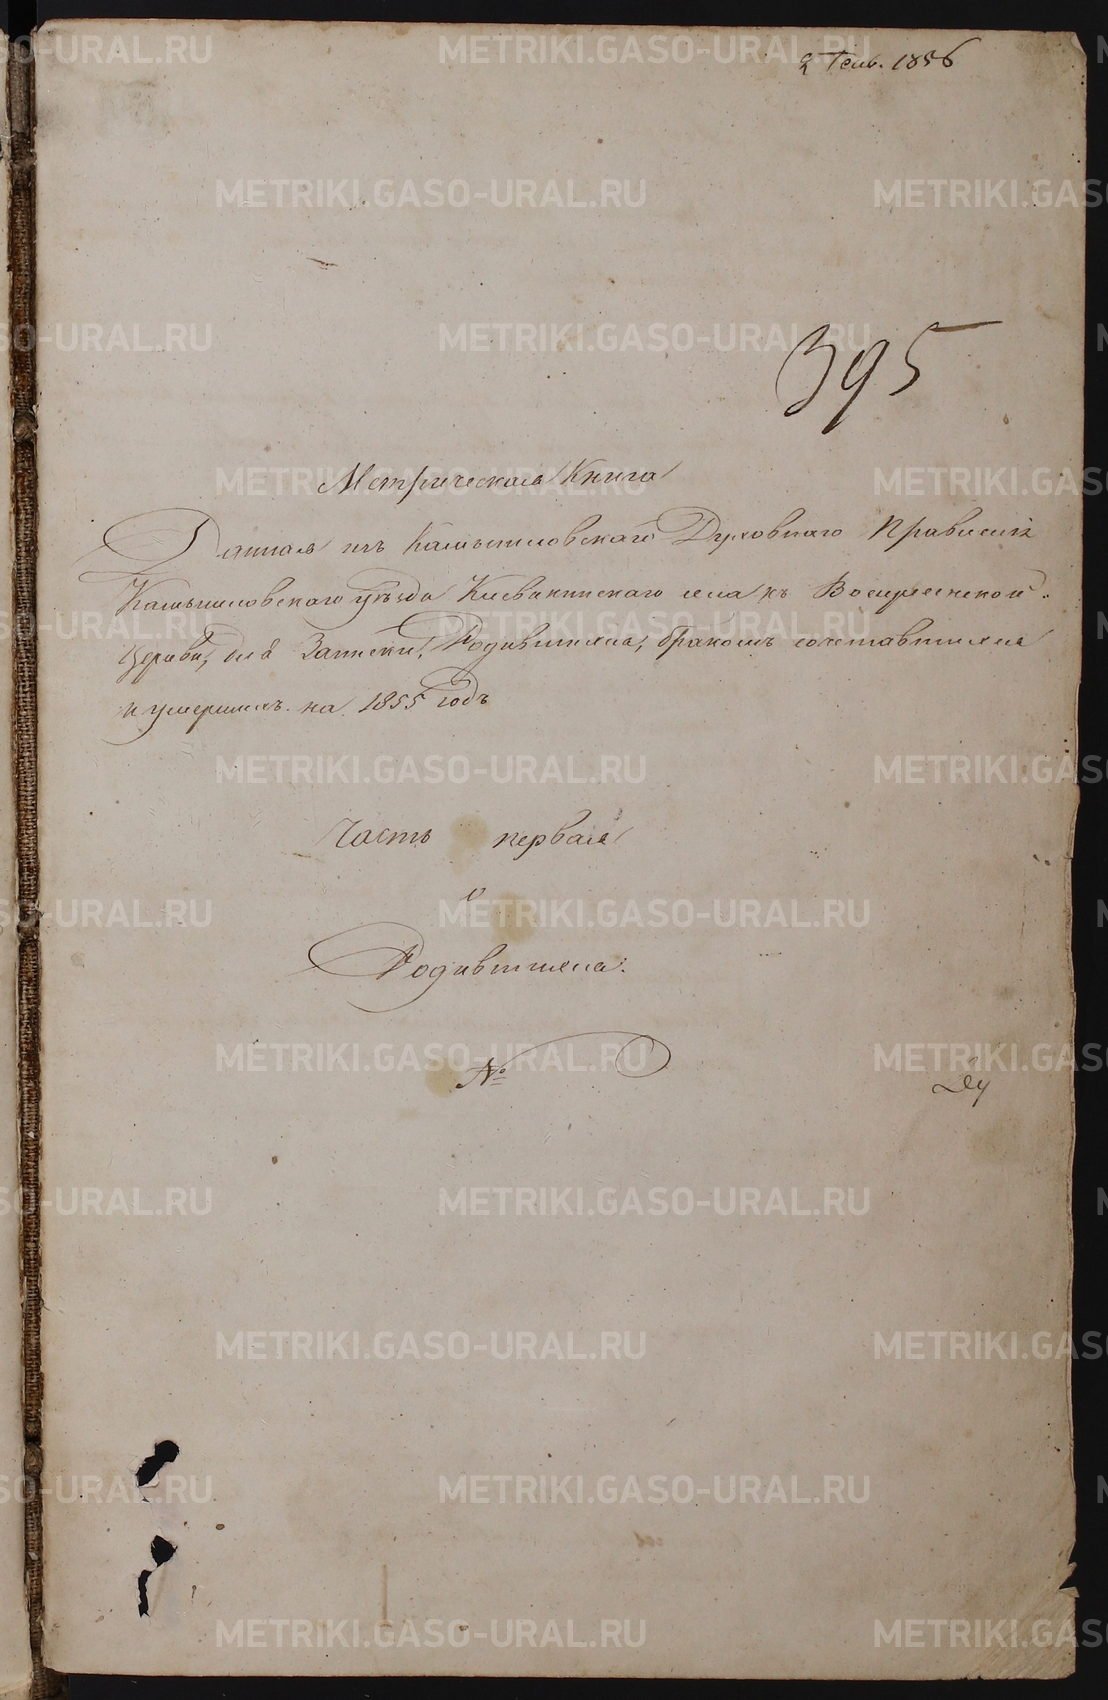 2 Генв. 1856
395
Метрическая Книга
Данная изъ Камышловскаго Духовнаго Правленія
Камышловскаго уѣзда Кисвакинскаго села къ Воскресенской
Церкви, для Записки, Родившихся, бракомъ сочетавшихся
и умершихъ на 1855 годъ
Часть первая
о
Родившихся.
№
METRIKI.GASO-URAL.RU